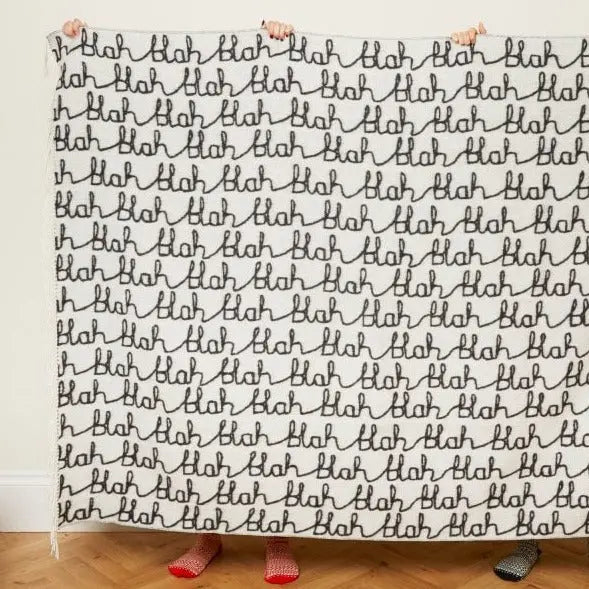 blah blah blah blah blah blah blah
blah blah blah blah blah blah blah blah
blah blah blah blah blah blah blah
blah blah blah blah blah blah blah blah
blah blah blah blah blah blah blah
blah blah blah blah blah blah blah blah
blah blah blah blah blah blah blah
blah blah blah blah blah blah blah blah
blah blah blah blah blah blah blah
blah blah blah blah blah blah blah blah
blah blah blah blah blah blah blah
blah blah blah blah blah blah blah blah
blah blah blah blah blah blah blah
blah blah blah blah blah blah blah blah
blah blah blah blah blah blah blah
blah blah blah blah blah blah blah blah